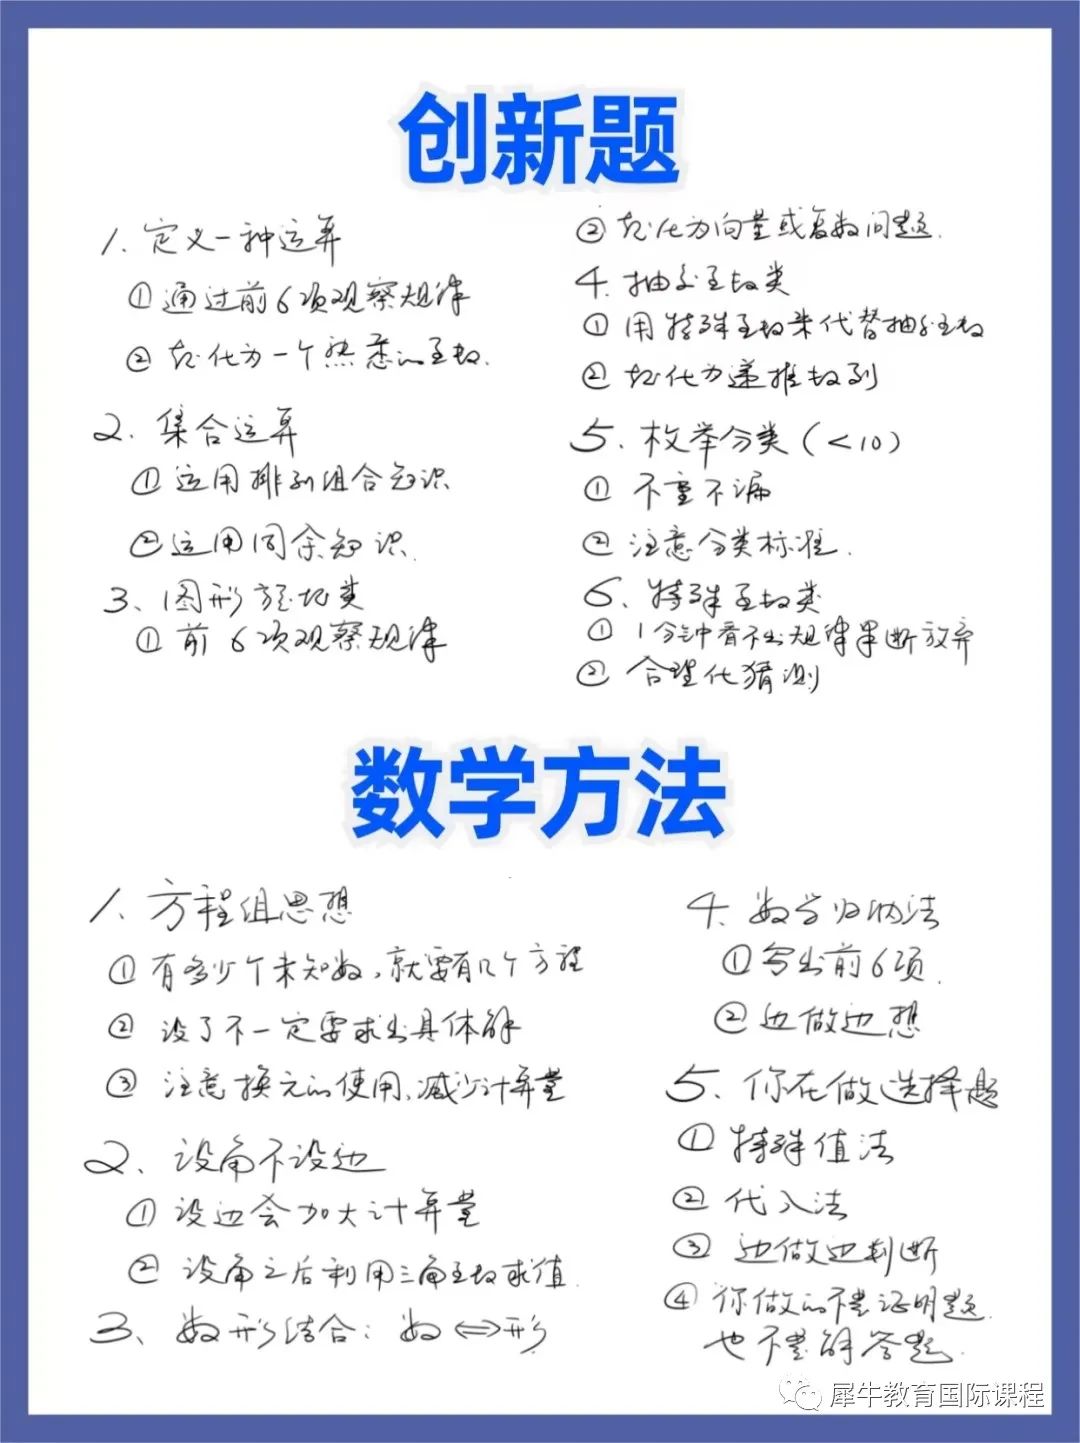 创新题
1. 定义一种运算
① 通过前6项观察规律
② 转化为一个熟悉的函数.
2. 集合运算
① 运用排列组合知识
② 运用同余知识.
3、图形旋转类
① 前6项观察规律
② 转化为向量或复数问题.
4. 抽象函数类
① 用特殊函数来代替抽象函数
② 转化为递推数列
5. 枚举分类(<10)
① 不重不漏
② 注意分类标准.
6、特殊函数类
① 1分钟看不出规律果断放弃
② 合理化猜测
数学方法
1、方程组思想
① 有多少个未知数,就要有几个方程
② 设了不一定要求出具体解
③ 注意换元的使用,减少计算量
2、设角不设边
① 设边会加大计算量
② 设角之后利用三角函数求值.
3、数形结合: 数⇔形
4. 数学归纳法
① 写出前6项.
② 边做边想
5、你在做选择题
① 特殊值法
② 代入法
③ 边做边判断
④ 你做的不是证明题.
也不是解答题.
犀牛教育国际课程